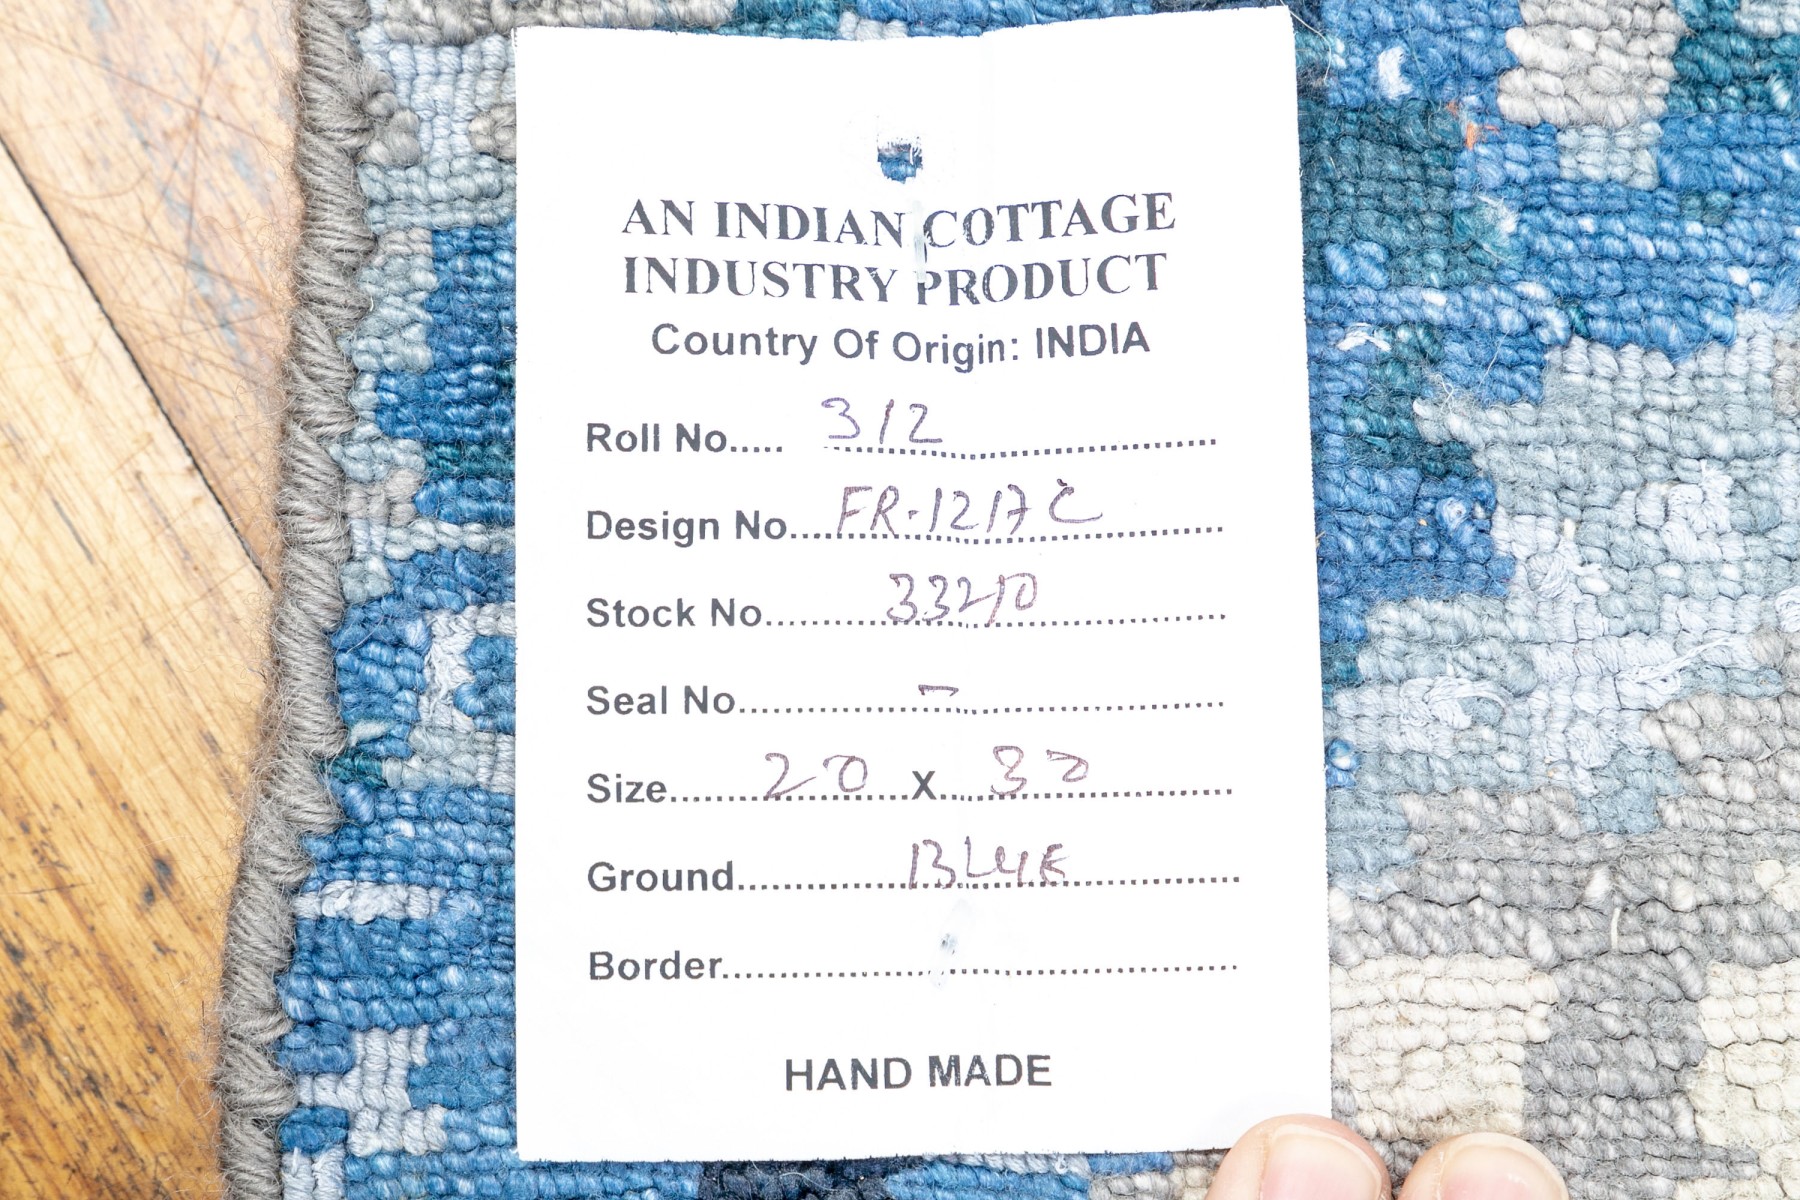 AN INDIAN COTTAGE
INDUSTRY PRODUCT
Country Of Origin: INDIA
Roll No..... 312
Design No. FR-1217C
Stock No. 33210
Seal No. -
Size 20 X 30
Ground BLUE
Border
HAND MADE